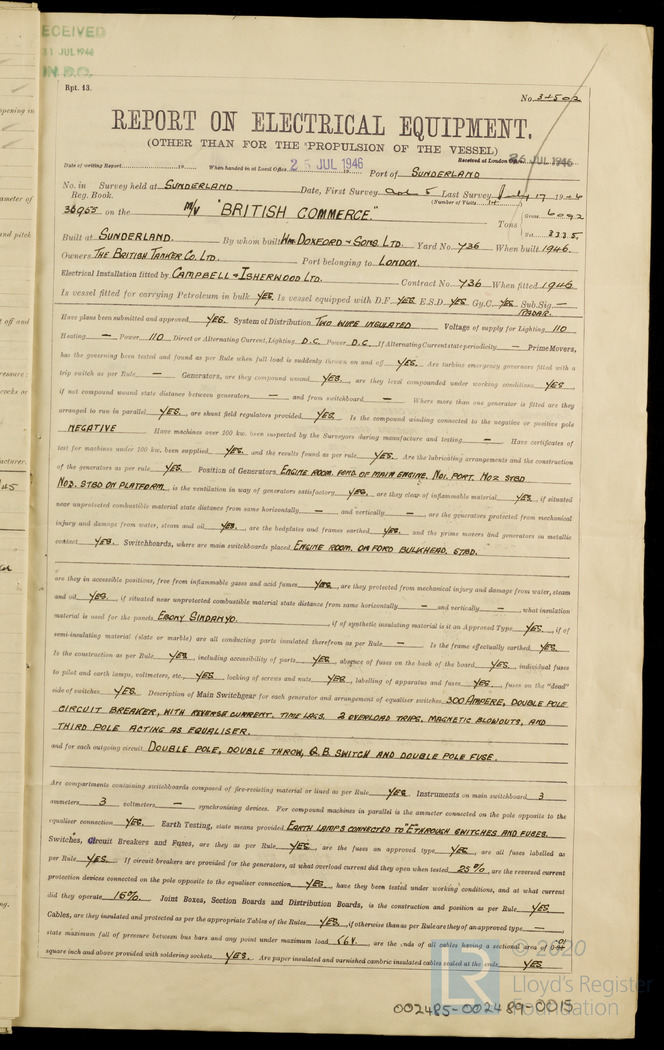 RECEIVED
31 JUL 1946
IN D.O.
Rpt. 13.
No. 34502
REPORT ON ELECTRICAL EQUIPMENT.
(OTHER THAN FOR THE PROPULSION OF THE VESSEL)
Received at London Office 26 JUL 1946
Date of writing Report 19 When handed in at Local Office 25 JUL 1946 19 Port of SUNDERLAND
No. in Survey held at SUNDERLAND Date, First Survey Last Survey July 17 1946
Reg. Book. (Number of Visits)
36955 on the M/V "BRITISH COMMERCE." Tons Gross 6092
Net 3335
Built at SUNDERLAND. By whom built Wm. DOXFORD & SONS. LTD. Yard No. 736 When built 1946.
Owners THE BRITISH TANKER CO. LTD. Port belonging to LONDON.
Electrical Installation fitted by CAMPBELL & ISHERWOOD LTD. Contract No. 736 When fitted 1946
Is vessel fitted for carrying Petroleum in bulk YES. Is vessel equipped with D.F. YES E.S.D. YES Gy.C. YES Sub.Sig. —
RADAR.
Have plans been submitted and approved YES. System of Distribution TWO WIRE INSULATED Voltage of supply for Lighting 110
Heating — Power 110 Direct or Alternating Current, Lighting D.C. Power D.C. If Alternating Current state periodicity — Prime Movers,
has the governing been tested and found as per Rule when full load is suddenly thrown on and off YES. Are turbine emergency governors fitted with a
trip switch as per Rule — Generators, are they compound wound YES., are they level compounded under working conditions YES,
if not compound wound state distance between generators — and from switchboard — Where more than one generator is fitted are they
arranged to run in parallel YES., are shunt field regulators provided YES. Is the compound winding connected to the negative or positive pole
NEGATIVE Have machines over 100 kw. been inspected by the Surveyors during manufacture and testing — Have certificates of
test for machines under 100 kw. been supplied YES. and the results found as per rule YES. Are the lubricating arrangements and the construction
of the generators as per rule YES. Position of Generators ENGINE ROOM. FORD. OF MAIN ENGINE. NO1. PORT. NO2 STBD
NO3. STBD ON PLATFORM., is the ventilation in way of generators satisfactory YES., are they clear of inflammable material YES, if situated
near unprotected combustible material state distance from same horizontally — and vertically —, are the generators protected from mechanical
injury and damage from water, steam and oil YES., are the bedplates and frames earthed YES. and the prime movers and generators in metallic
contact YES. Switchboards, where are main switchboards placed ENGINE ROOM. ON FORD BULKHEAD. STBD.
are they in accessible positions, free from inflammable gases and acid fumes YES, are they protected from mechanical injury and damage from water, steam
and oil YES., if situated near unprotected combustible material state distance from same horizontally — and vertically —, what insulation
material is used for the panels EBONY SINDANYO., if of synthetic insulating material is it an Approved Type YES., if of
semi-insulating material (slate or marble) are all conducting parts insulated therefrom as per Rule — Is the frame effectually earthed YES.
Is the construction as per Rule YES., including accessibility of parts YES., absence of fuses on the back of the board YES., individual fuses
to pilot and earth lamps, voltmeters, etc., YES., locking of screws and nuts YES., labelling of apparatus and fuses YES., fuses on the "dead"
side of switches YES. Description of Main Switchgear for each generator and arrangement of equaliser switches 300 AMPERE, DOUBLE POLE
CIRCUIT BREAKER, WITH REVERSE CURRENT, TIME LAGS. 2 OVERLOAD TRIPS, MAGNETIC BLOWOUTS, AND
THIRD POLE ACTING AS EQUALISER.
and for each outgoing circuit DOUBLE POLE, DOUBLE THROW, Q.B. SWITCH AND DOUBLE POLE FUSE.
Are compartments containing switchboards composed of fire-resisting material or lined as per Rule YES. Instruments on main switchboard 3
ammeters 3 voltmeters — synchronising devices. For compound machines in parallel is the ammeter connected on the pole opposite to the
equaliser connection YES. Earth Testing, state means provided EARTH LAMPS CONNECTED TO "E" THROUGH SWITCHES AND FUSES.
Switches, Circuit Breakers and Fuses, are they as per Rule YES., are the fuses an approved type YES., are all fuses labelled as
per Rule YES. If circuit breakers are provided for the generators, at what overload current did they open when tested 25%, are the reversed current
protection devices connected on the pole opposite to the equaliser connection YES., have they been tested under working conditions, and at what current
did they operate 15%. Joint Boxes, Section Boards and Distribution Boards, is the construction and position as per Rule YES.
Cables, are they insulated and protected as per the appropriate Tables of the Rules YES., if otherwise than as per Rule are they of an approved type —
state maximum fall of pressure between bus bars and any point under maximum load <6V., are the ends of all cables having a sectional area of
square inch and above provided with soldering sockets YES. Are paper insulated and varnished cambric insulated cables sealed at the ends YES
© 2020
LR
Lloyd's Register
Foundation
002485-002489-0015